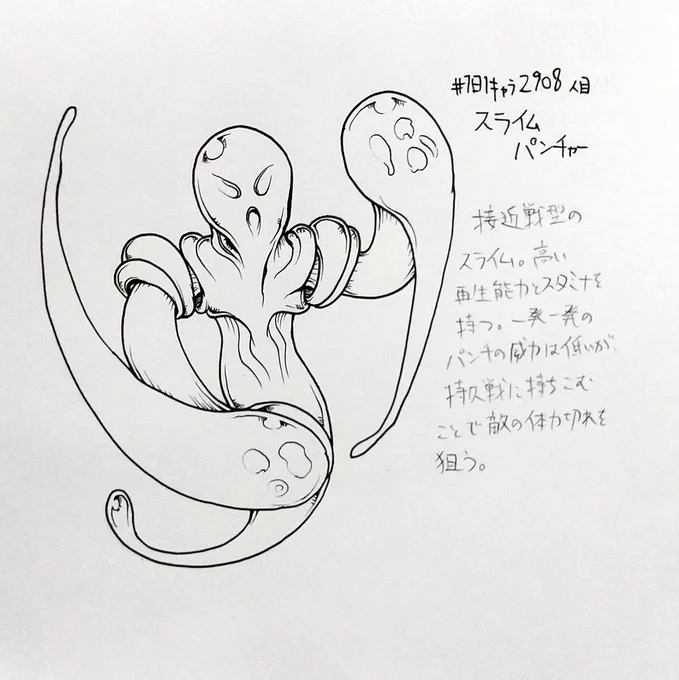 #1日1キャラ2908人目
スライム
パンチャー
接近戦型の
スライム。高い
再生能力とスタミナを
持つ。一発一発の
パンチの威力は低いが、
持久戦に持ちこむ
ことで敵の体力切れを
狙う。